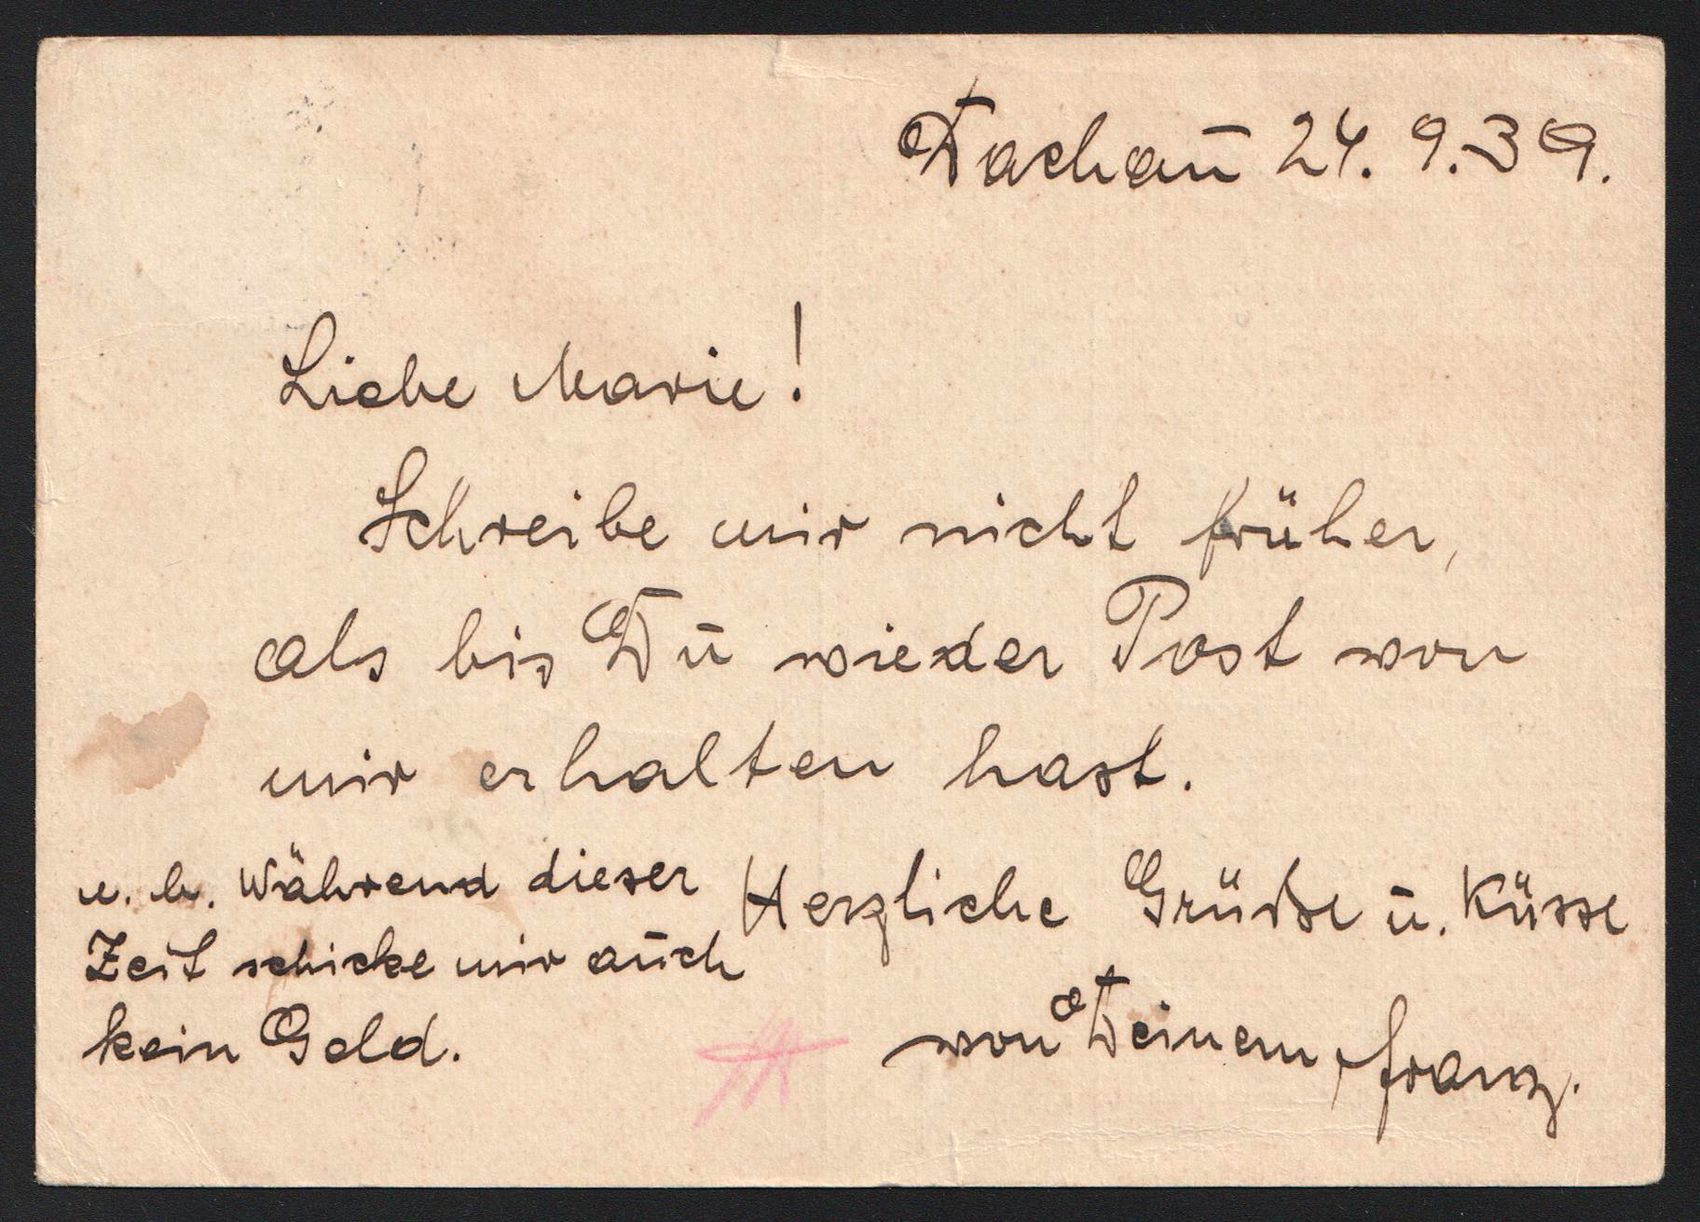 Dachau 24. 9. 39.
Liebe Marie!
Schreibe mir nicht früher,
als bis Du wieder Post von
mir erhalten hast.
Herzliche Grüsse u. Küsse
von Deinem Franz.
Während dieser
Zeit schicke mir auch
kein Geld.